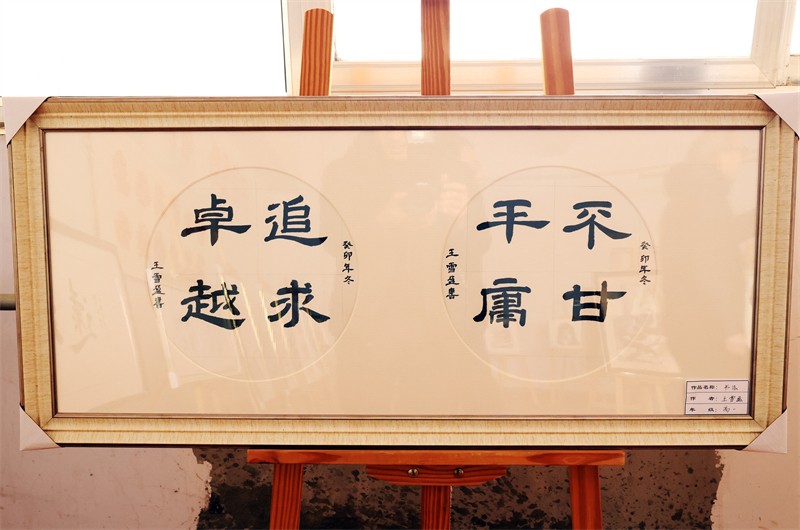 癸卯年冬
不甘
平庸
王雪盈書
癸卯年冬
追求
卓越
王雪盈書
作品名称：
作 者：王雪盈
年 级：